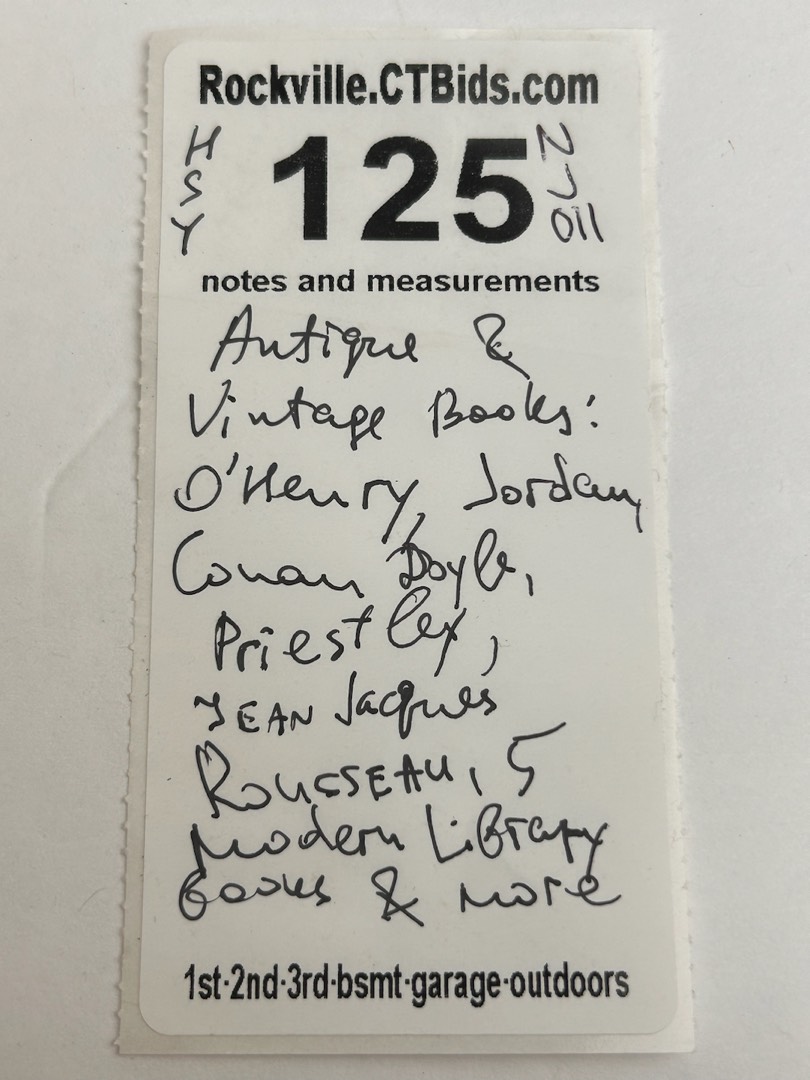 Rockville.CTBids.com
H
S
Y
125
N
J
011
notes and measurements
Antique &
Vintage Books:
O'Henry, Jordan,
Conan Doyle,
Priestley,
JEAN Jacques
ROUSSEAU, 5
Modern Library
Books & more
1st·2nd·3rd·bsmt·garage·outdoors